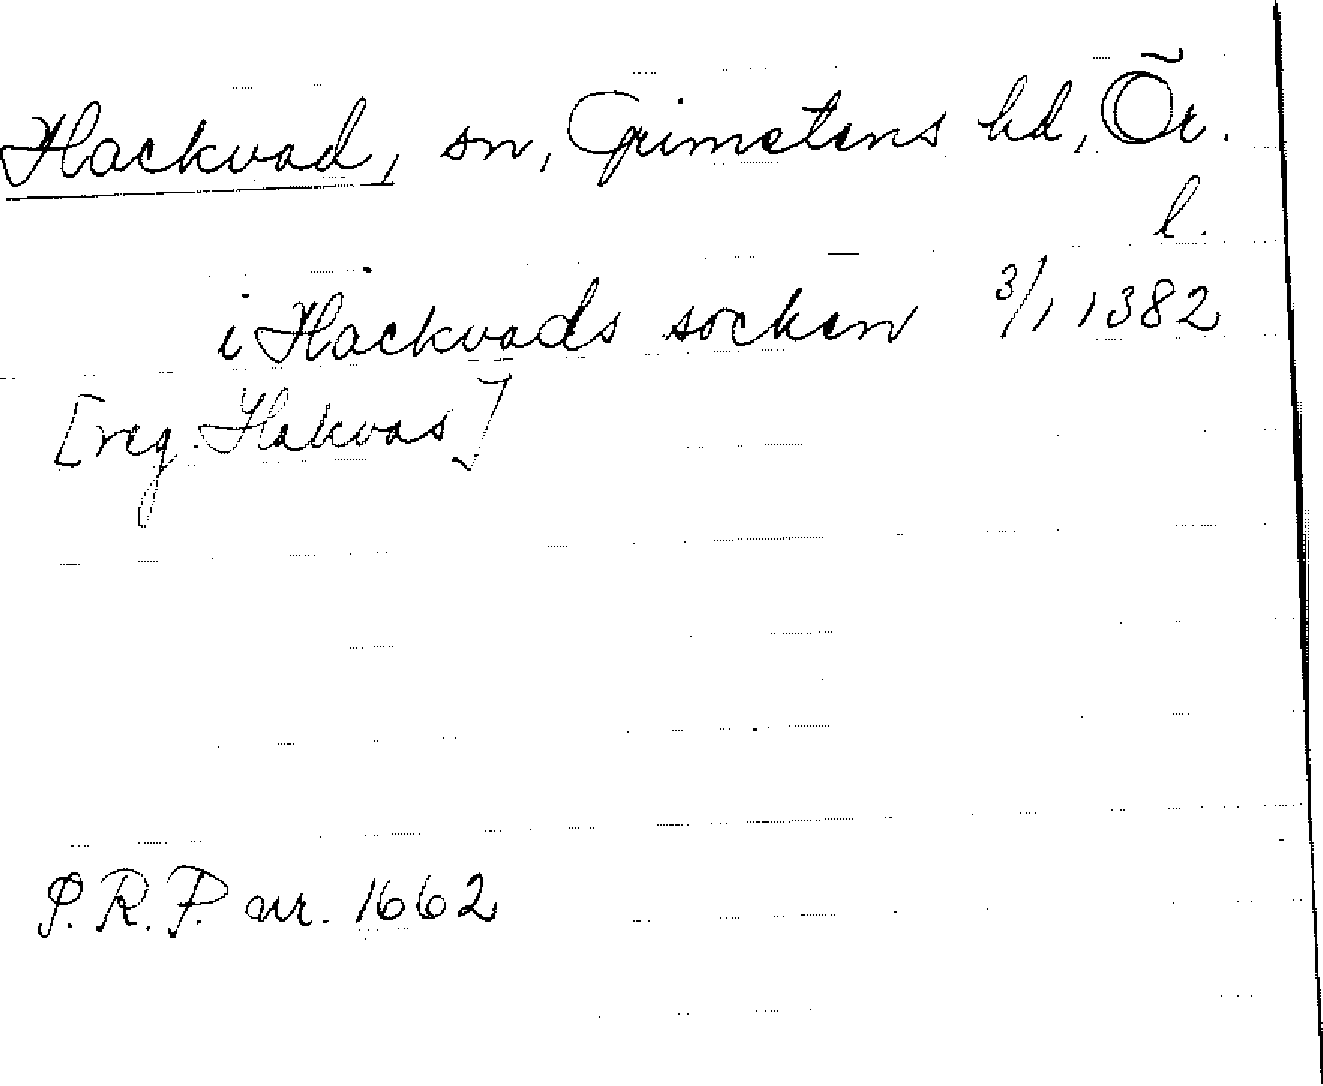 Hackvad, sn, Grimstens hd, Ör.
l.
i Hackvads socken 3/1 1382
[reg. Hakvas]
P.R.P. nr. 1662